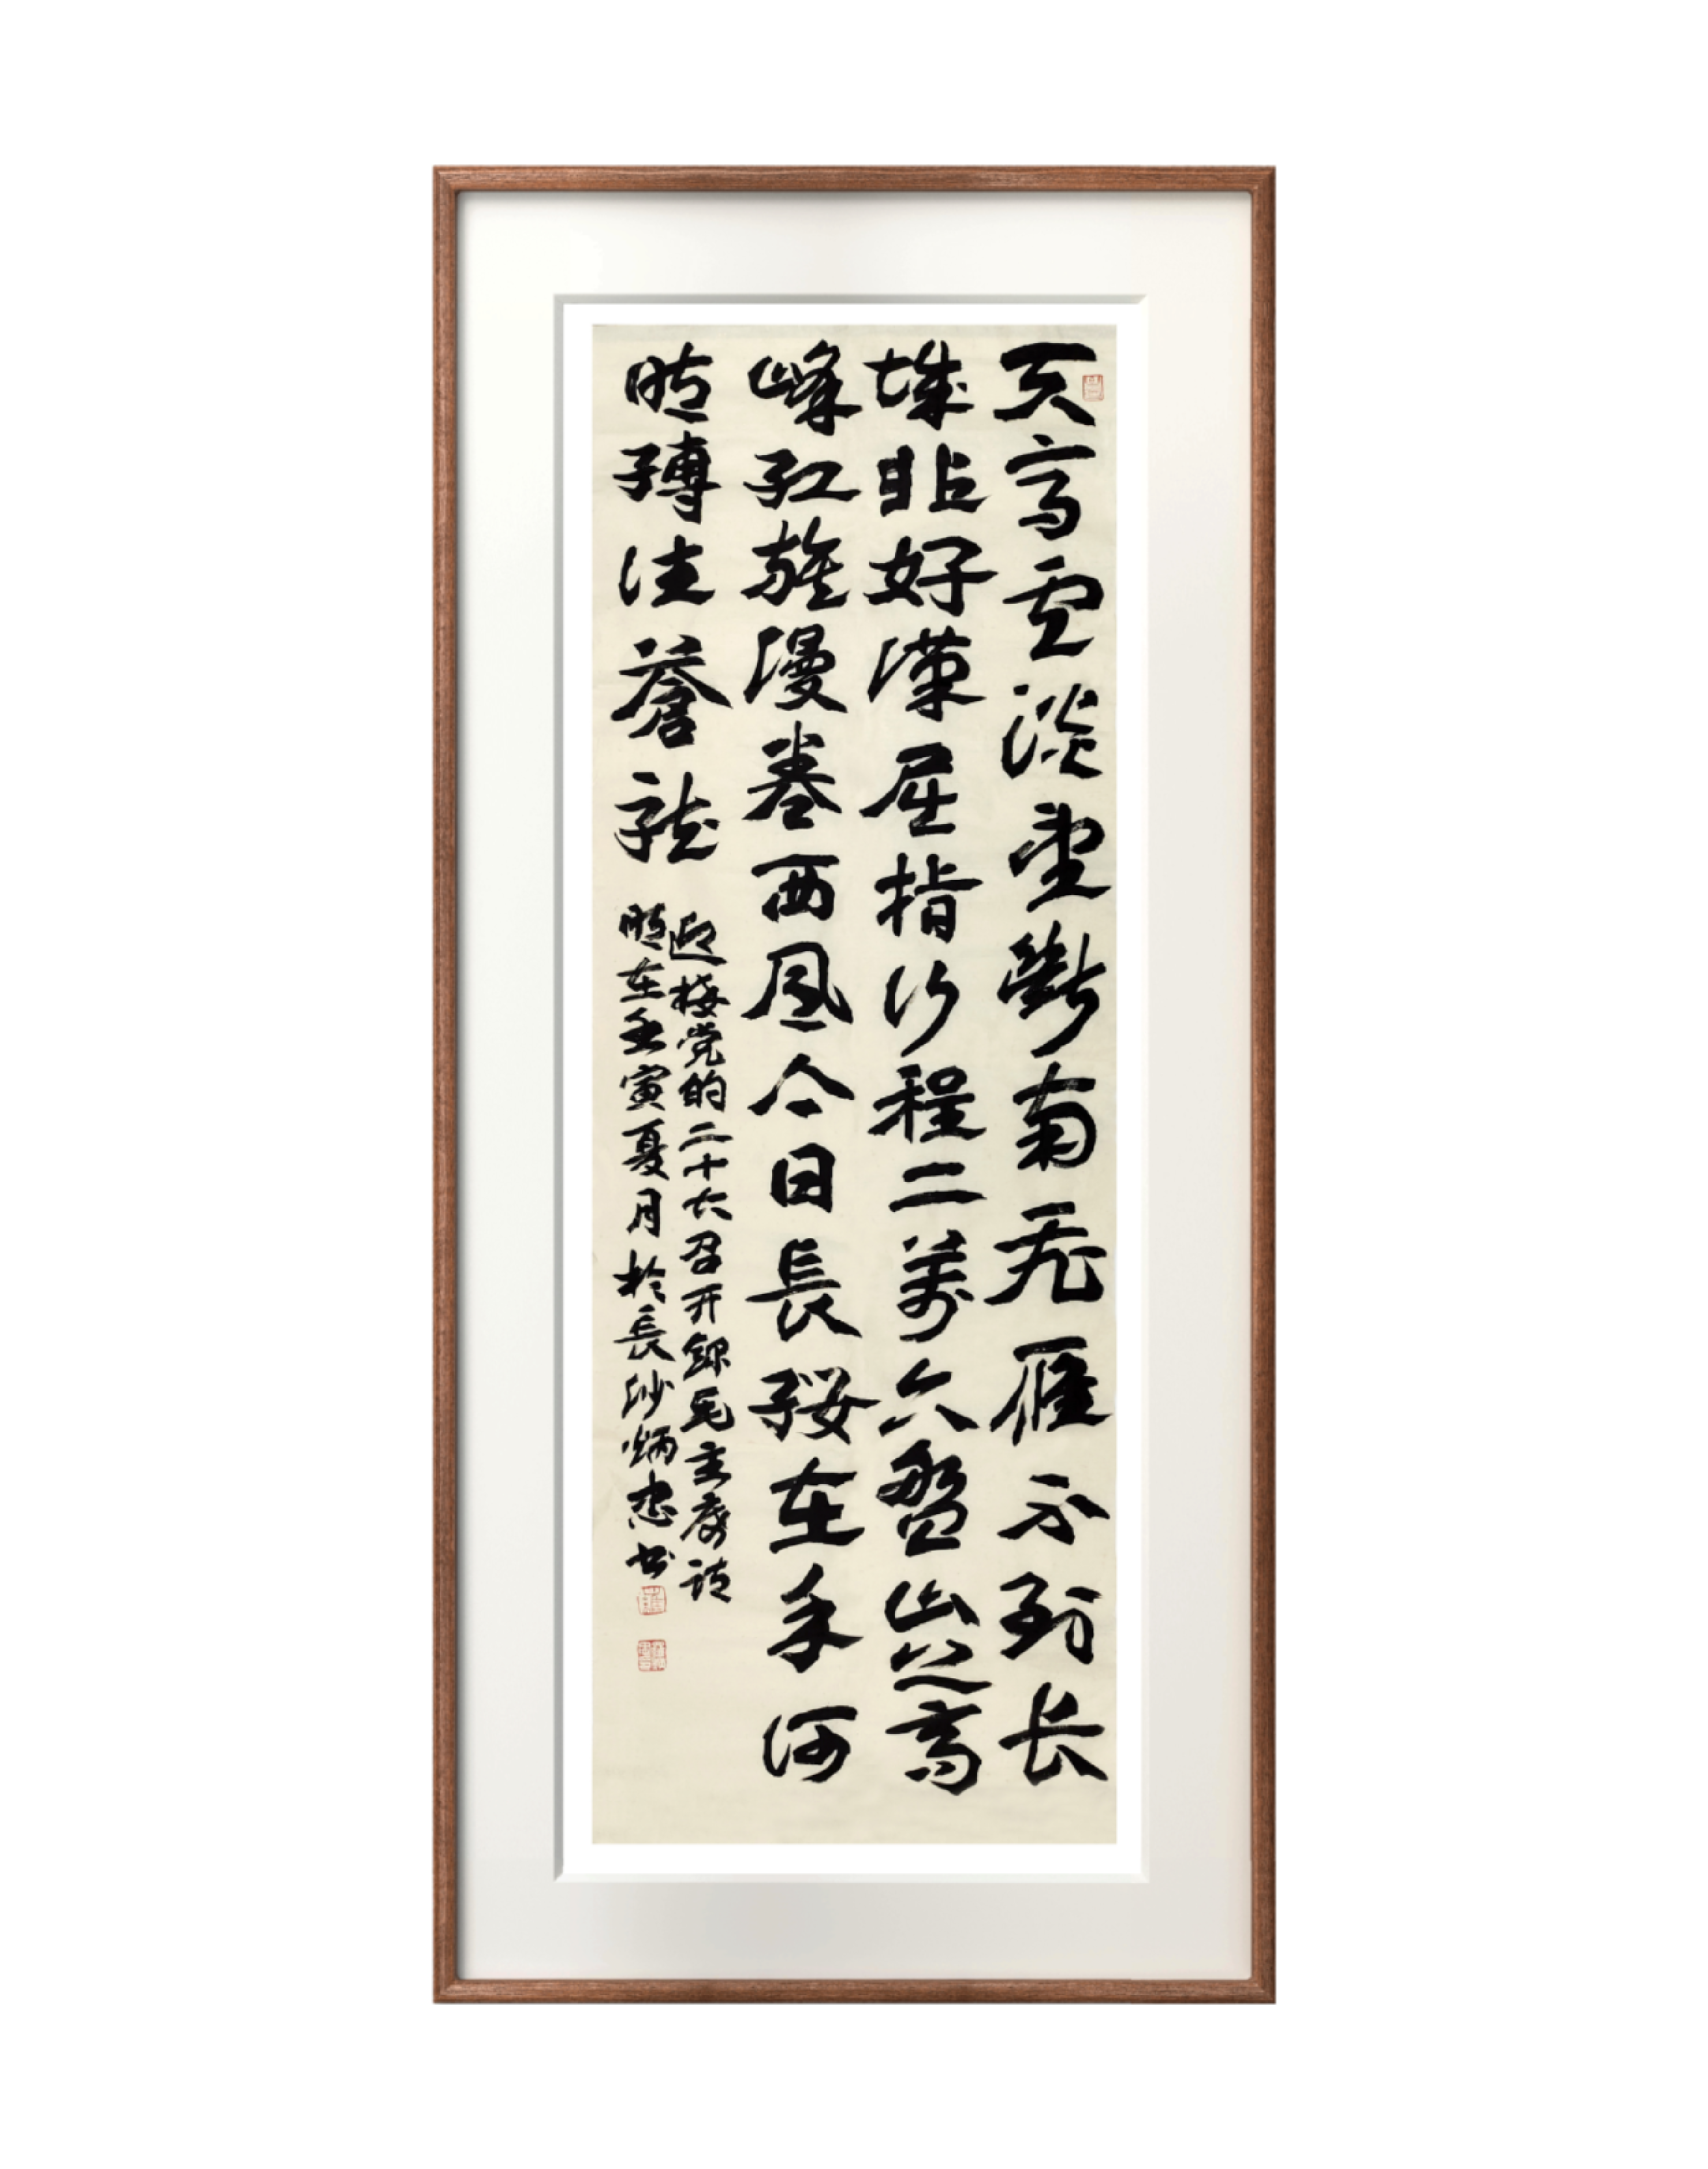 天高雲淡望斷南飛雁不到长
城非好漢屈指行程二萬六盤山上高
峰紅旗漫卷西風今日長纓在手何
時縛住蒼龍
迎接党的二十大召开錄毛主席詩
時在壬寅夏月於長沙炳忠书